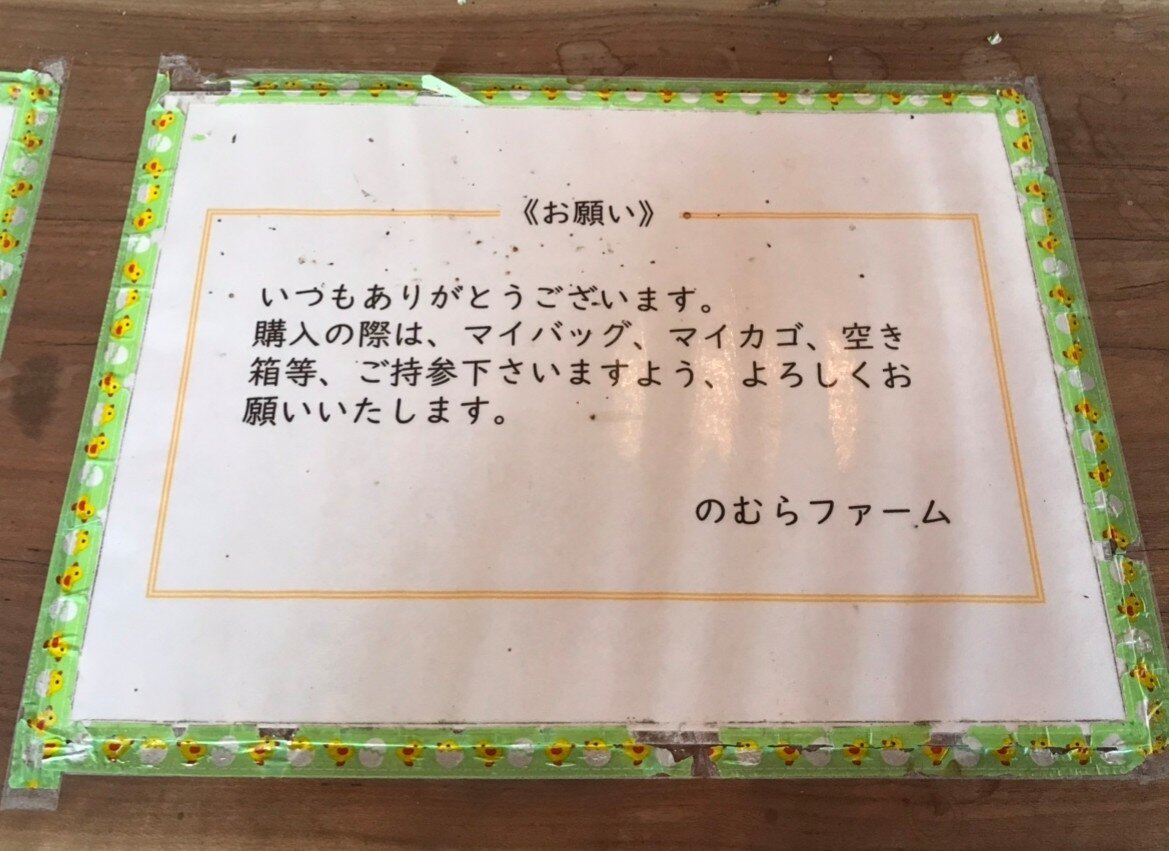 《お願い》
いつもありがとうございます。
購入の際は、マイバッグ、マイカゴ、空き
箱等、ご持参下さいますよう、よろしくお
願いいたします。
のむらファーム